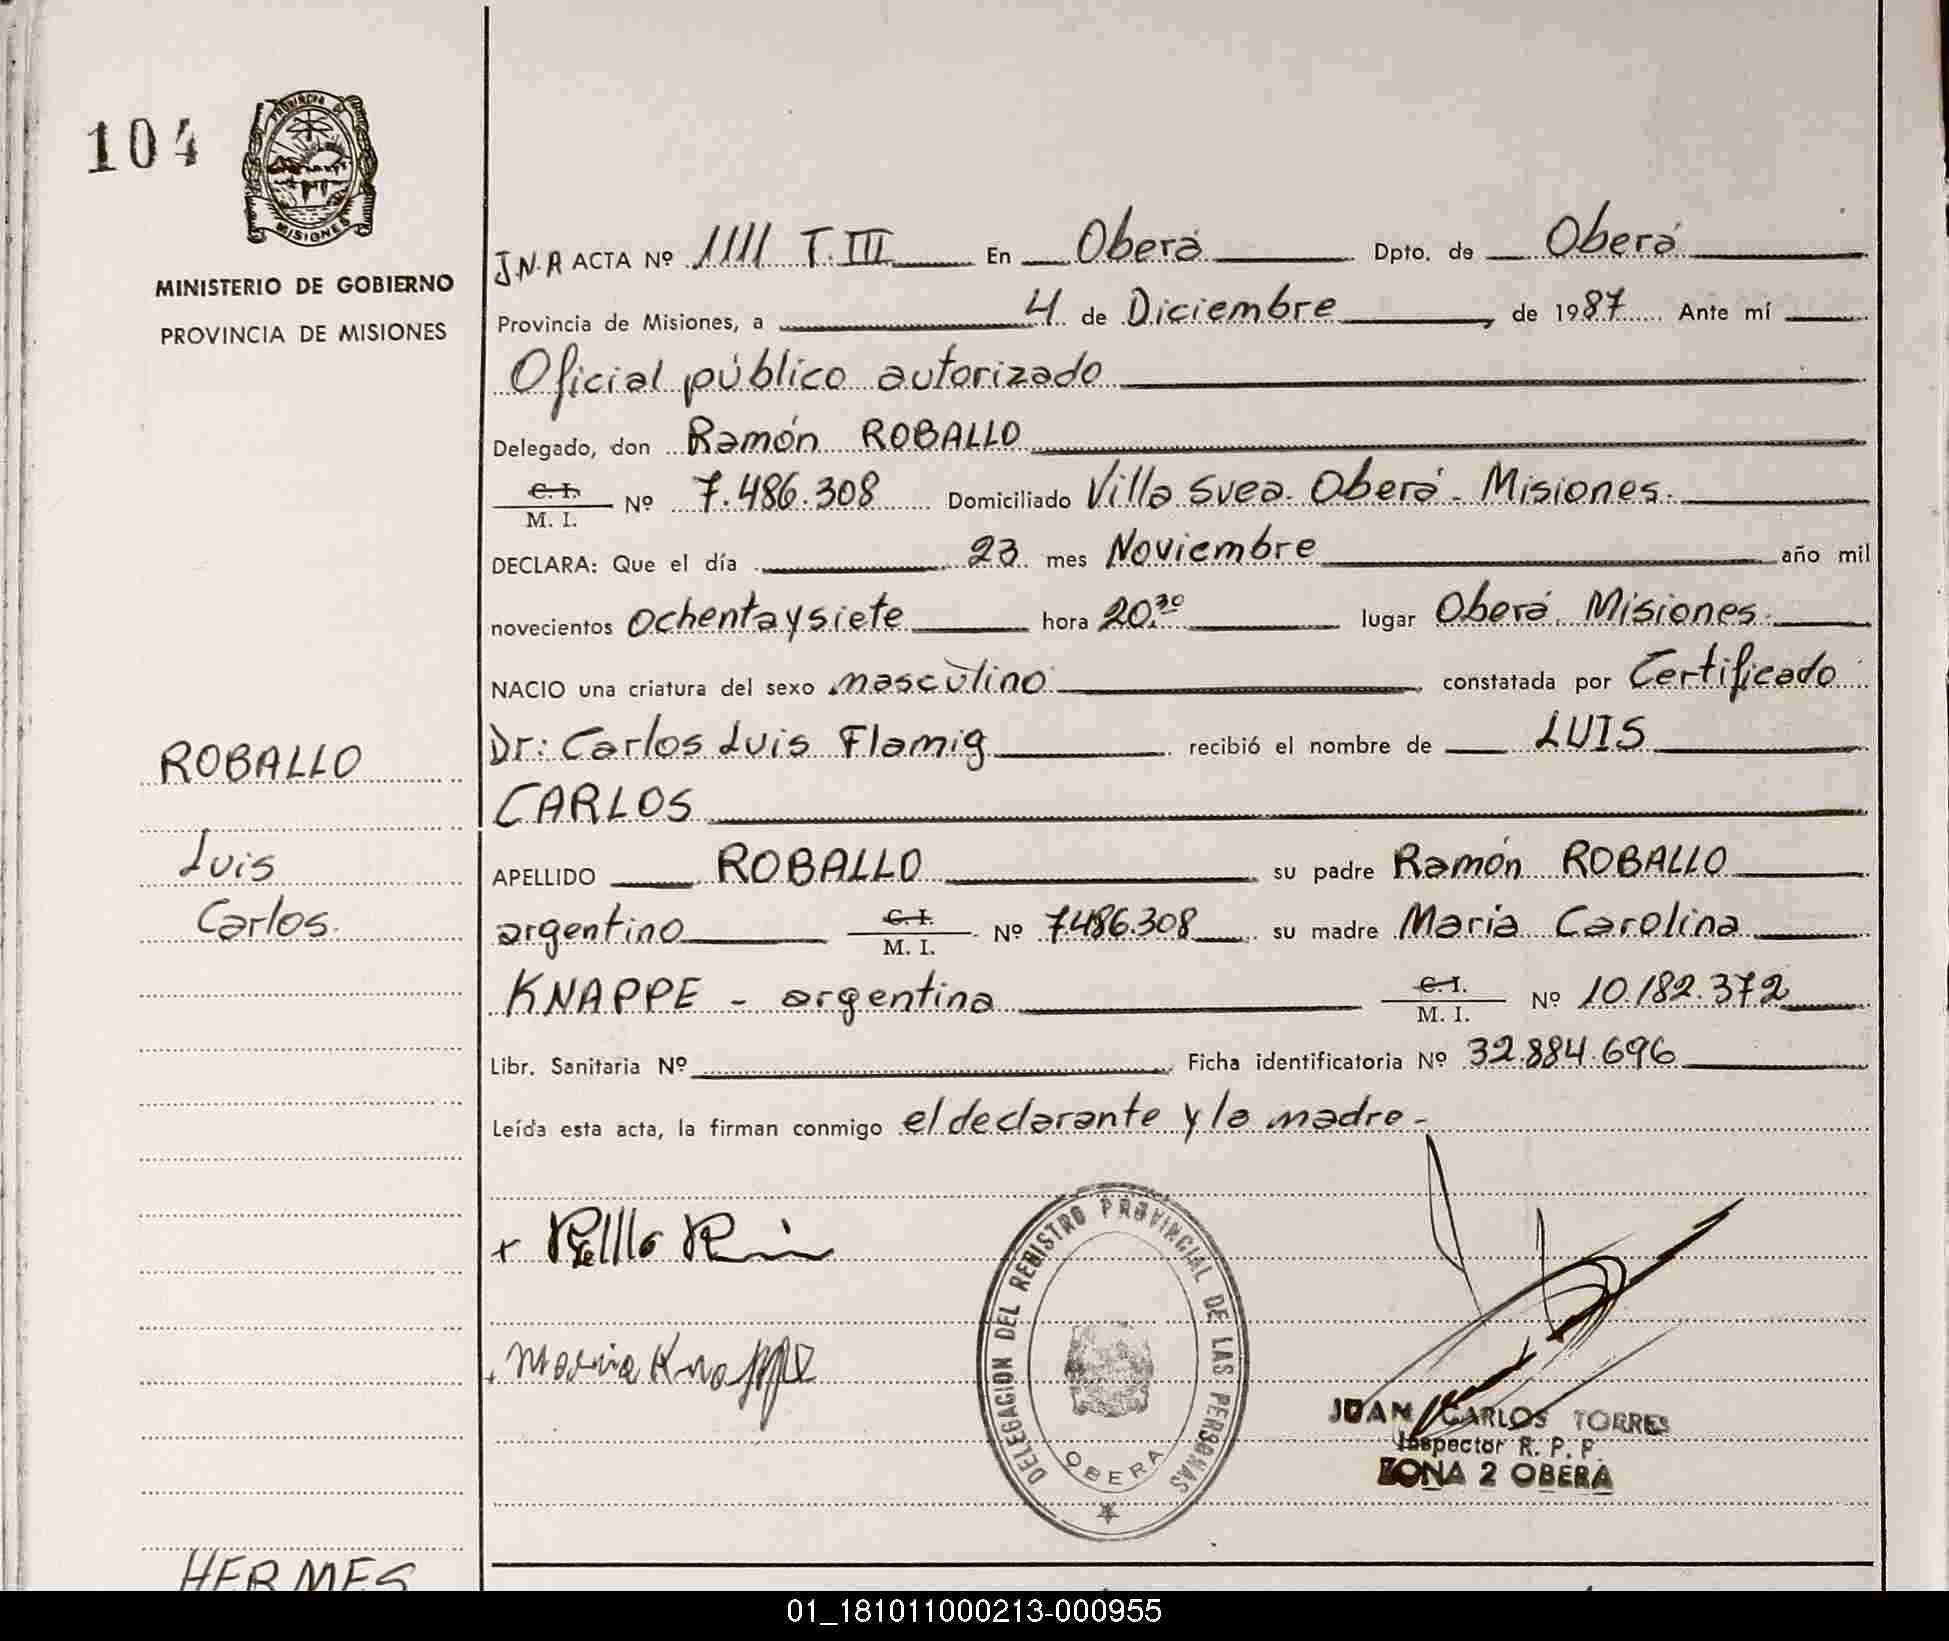 104
PROVINCIA DE
MISIONES
MINISTERIO DE GOBIERNO
PROVINCIA DE MISIONES
J.N.A ACTA Nº 1111 T.III En Oberá Dpto. de Oberá
Provincia de Misiones, a 4 de Diciembre de 1987 Ante mí
Oficial público autorizado
Delegado, don Ramón ROBALLO
C. I.
M. I. Nº 7.486.308 Domiciliado Villa Svea. Oberá - Misiones.
DECLARA: Que el día 23 mes Noviembre año mil
novecientos ochenta y siete hora 20.30 lugar Oberá. Misiones.
NACIO una criatura del sexo masculino constatada por Certificado
Dr: Carlos Luis Flamig recibió el nombre de LUIS
CARLOS
APELLIDO ROBALLO su padre Ramón ROBALLO
argentino C. I.
M. I. Nº 7.486.308 su madre Maria Carolina
KNAPPE - argentina C. I.
M. I. Nº 10.182.372
Libr. Sanitaria Nº Ficha identificatoria Nº 32.884.696
Leída esta acta, la firman conmigo el declarante y la madre -
ROBALLO
Luis
Carlos.
Maria Knappe
DELEGACION DEL REGISTRO PROVINCIAL DE LAS PERSONAS
OBERA
JUAN CARLOS TORRES
Inspector R. P. P.
ZONA 2 OBERÁ
HERMES
01_181011000213-000955